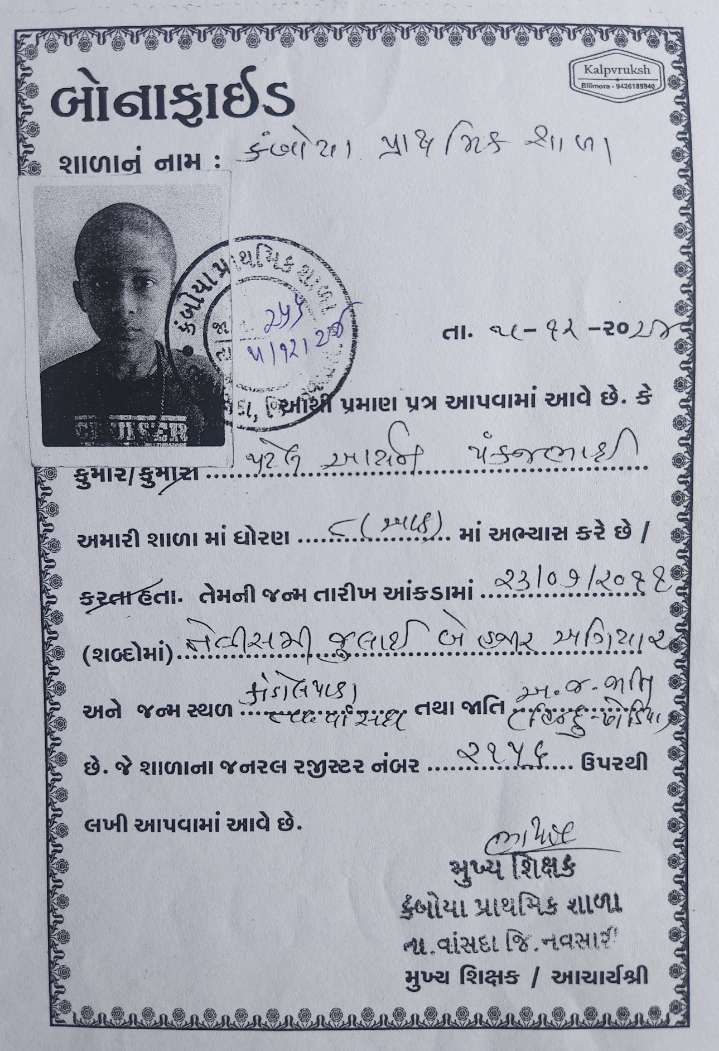 Kalpvruksh
Bilimora - 9426185940
બોનાફાઈડ
શાળાનું નામ : કંબોયા પ્રાથમિક શાળા
કંબોયા પ્રાથમિક શાળા
તા. ૫-૧૨-૨૦૨૪
આથી પ્રમાણ પત્ર આપવામાં આવે છે. કે
કુમાર/કુમારી પટેલ પંકજભાઈ
અમારી શાળા માં ધોરણ ૮ (આઠ) માં અભ્યાસ કરે છે /
કરતા હતા. તેમની જન્મ તારીખ આંકડામાં ૨૩/૦૭/૨૦૧૧
(શબ્દોમાં) ત્રેવીસમી જુલાઈ બે હજાર અગિયાર
અને જન્મ સ્થળ તથા જાતિ અ.જ.જાતિ
(હિન્દુ-
છે. જે શાળાના જનરલ રજીસ્ટર નંબર ૨૧૫૬ ઉપરથી
લખી આપવામાં આવે છે.
મુખ્ય શિક્ષક
કંબોયા પ્રાથમિક શાળા
તા.વાંસદા જિ.નવસારી
મુખ્ય શિક્ષક / આચાર્યશ્રી